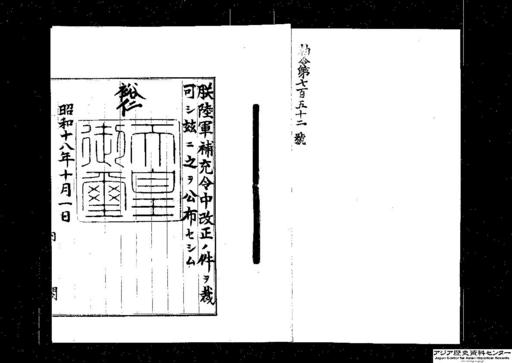 勅令第七百五十二號
朕陸軍補充令中改正ノ件ヲ裁
可シ玆ニ之ヲ公布セシム
裕仁
天皇
御璽
昭和十八年十月一日
内閣
アジア歴史資料センター
Japan Center for Asian Historical Records